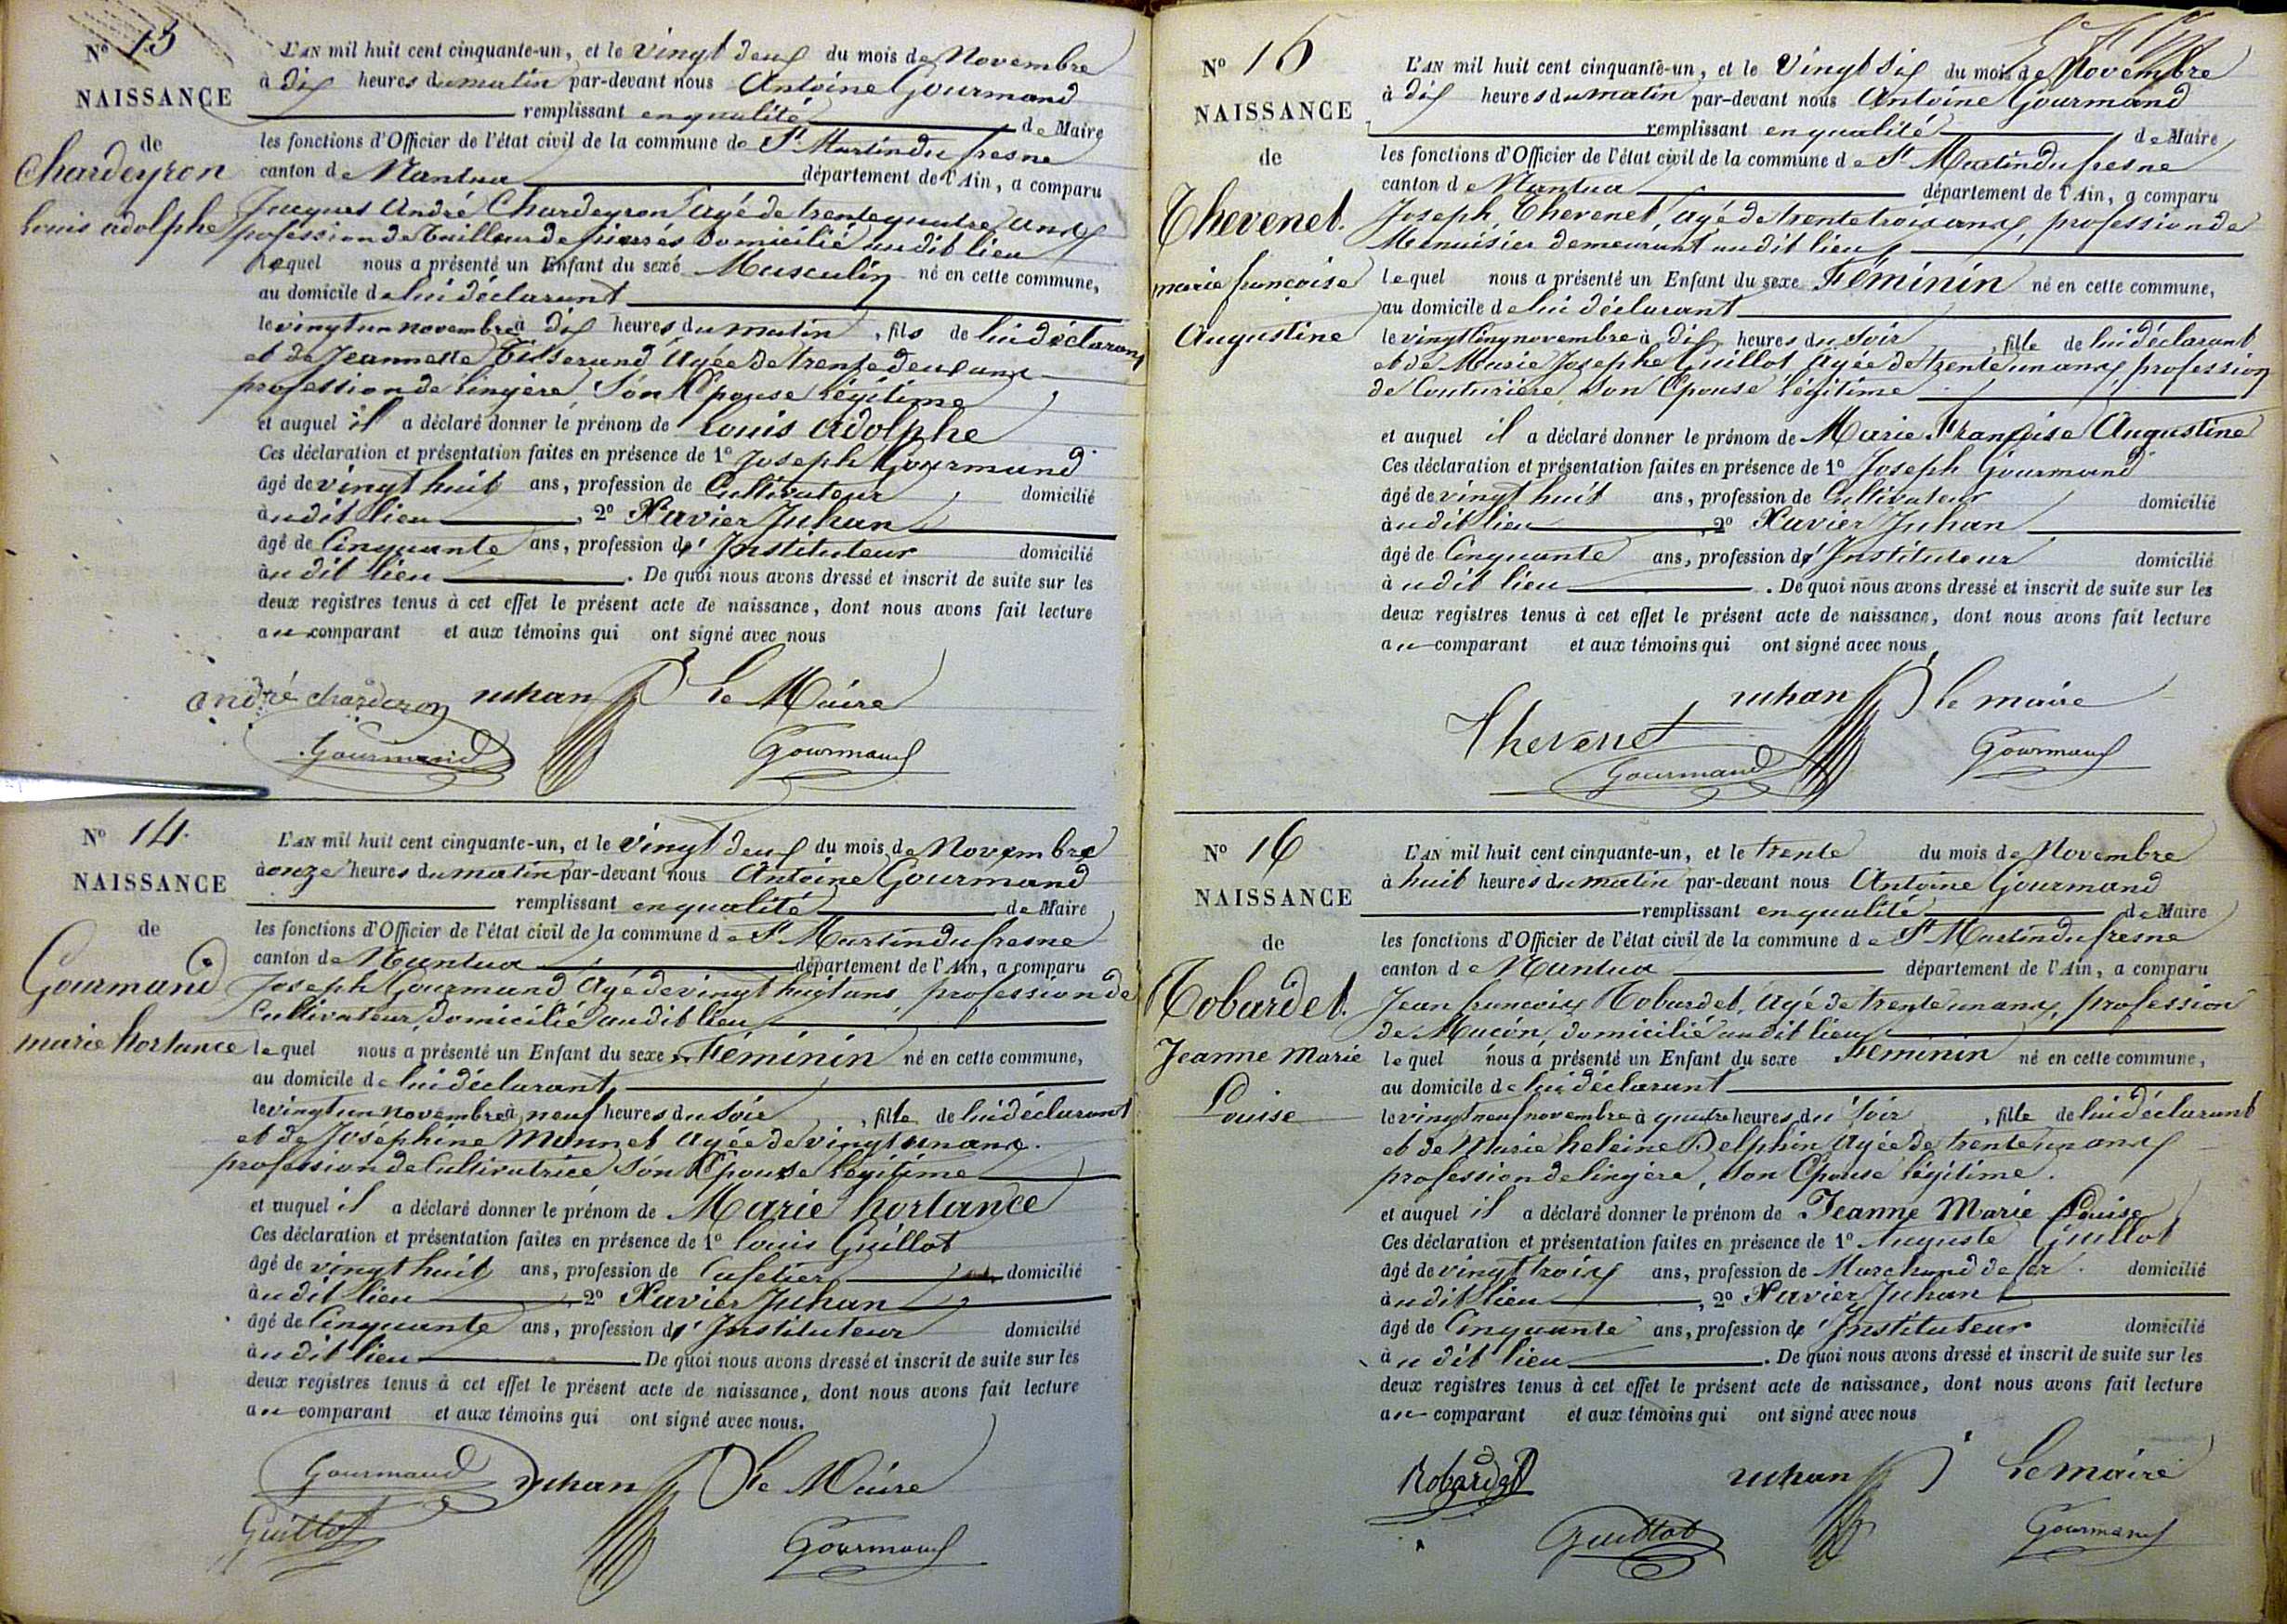 N° 13
NAISSANCE
de
Chardeyron
Louis adolphe
L'AN mil huit cent cinquante-un, et le vingt deux du mois de Novembre
à dix heures du matin par-devant nous Antoine Gourmand
remplissant en qualité de Maire
les fonctions d'Officier de l'état civil de la commune de St Martin du fresne
canton de Nantua département de l'Ain, a comparu
Jacques André Chardeyron âgé de trente quatre ans
profession de Tailleur de pierres domicilié audit lieu
lequel nous a présenté un Enfant du sexe Masculin né en cette commune,
au domicile de lui déclarant
le vingt un novembre à dix heures du matin, fils de lui déclarant
et de Jeannette Tisserand âgée de trente deux ans
profession de lingère, son Epouse légitime
et auquel il a déclaré donner le prénom de Louis adolphe
Ces déclaration et présentation faites en présence de 1° Joseph Gourmand
âgé de vingt huit ans, profession de Cultivateur, domicilié
audit lieu, 2° Xavier Juhan
âgé de Cinquante ans, profession d'Instituteur domicilié
audit lieu. De quoi nous avons dressé et inscrit de suite sur les
deux registres tenus à cet effet le présent acte de naissance, dont nous avons fait lecture
au comparant et aux témoins qui ont signé avec nous
andré charderon Juhan Le Maire
Gourmand Gourmand
N° 14.
NAISSANCE
de
Gourmand
marie hortance
L'AN mil huit cent cinquante-un, et le vingt deux du mois de Novembre
à onze heures du matin par-devant nous Antoine Gourmand
remplissant en qualité de Maire
les fonctions d'Officier de l'état civil de la commune de St Martin du fresne
canton de Nantua département de l'Ain, a comparu
Joseph Gourmand âgé de vingt huit ans, profession de
Cultivateur, domicilié audit lieu
lequel nous a présenté un Enfant du sexe Féminin né en cette commune,
au domicile de lui déclarant
le vingt un novembre à neuf heures du soir, fille de lui déclarant
et de Joséphine Monnet âgée de vingt un ans.
profession de Cultivatrice son Epouse légitime
et auquel il a déclaré donner le prénom de Marie hortance
Ces déclaration et présentation faites en présence de 1° Louis Guillot
âgé de vingt huit ans, profession de Cafetier domicilié
audit lieu, 2° Xavier Juhan
âgé de Cinquante ans, profession d'Instituteur domicilié
audit lieu De quoi nous avons dressé et inscrit de suite sur les
deux registres tenus à cet effet le présent acte de naissance, dont nous avons fait lecture
au comparant et aux témoins qui ont signé avec nous.
Gourmand Juhan Le Maire
Guillot Gourmand
N° 15
NAISSANCE
de
Thevenet.
marie françoise
Augustine
L'AN mil huit cent cinquante-un, et le vingt six du mois de Novembre
à dix heures du matin par-devant nous Antoine Gourmand
remplissant en qualité de Maire
les fonctions d'Officier de l'état civil de la commune de St Martin du fresne
canton de Nantua département de l'Ain, a comparu
Joseph Thevenet, âgé de trente trois ans, profession de
Menuisier demeurant audit lieu
lequel nous a présenté un Enfant du sexe Féminin né en cette commune,
au domicile de lui déclarant
le vingt cinq novembre à dix heures du soir, fille de lui déclarant
et de Marie Josephe Guillot âgée de trente un ans, profession
de Couturière, son Epouse légitime
et auquel il a déclaré donner le prénom de Marie Françoise Augustine
Ces déclaration et présentation faites en présence de 1° Joseph Gourmand
âgé de vingt huit ans, profession de Cultivateur, domicilié
audit lieu, 2° Xavier Juhan
âgé de Cinquante ans, profession d'Instituteur domicilié
audit lieu. De quoi nous avons dressé et inscrit de suite sur les
deux registres tenus à cet effet le présent acte de naissance, dont nous avons fait lecture
au comparant et aux témoins qui ont signé avec nous
Juhan le maire
Thevenet Gourmand Gourmand
N° 16
NAISSANCE
de
Robardet.
Jeanne Marie
Louise
L'AN mil huit cent cinquante-un, et le trente du mois de Novembre
à huit heures du matin par-devant nous Antoine Gourmand
remplissant en qualité de Maire
les fonctions d'Officier de l'état civil de la commune de St Martin du fresne
canton de Nantua département de l'Ain, a comparu
Jean françois Robardet, âgé de trente un ans, profession
de Maçon, domicilié audit lieu
lequel nous a présenté un Enfant du sexe Féminin né en cette commune,
au domicile de lui déclarant
le vingt neuf novembre à quatre heures du soir, fille de lui déclarant
et de Marie heleine Delphin âgée de trente un ans
profession de lingère, son Epouse légitime.
et auquel il a déclaré donner le prénom de Jeanne Marie Louise
Ces déclaration et présentation faites en présence de 1° Auguste Guillot
âgé de vingt trois ans, profession de Marchand de fer. domicilié
audit lieu, 2° Xavier Juhan
âgé de Cinquante ans, profession d'Instituteur domicilié
audit lieu. De quoi nous avons dressé et inscrit de suite sur les
deux registres tenus à cet effet le présent acte de naissance, dont nous avons fait lecture
au comparant et aux témoins qui ont signé avec nous
Robardet Juhan Le maire
Guillot Gourmand